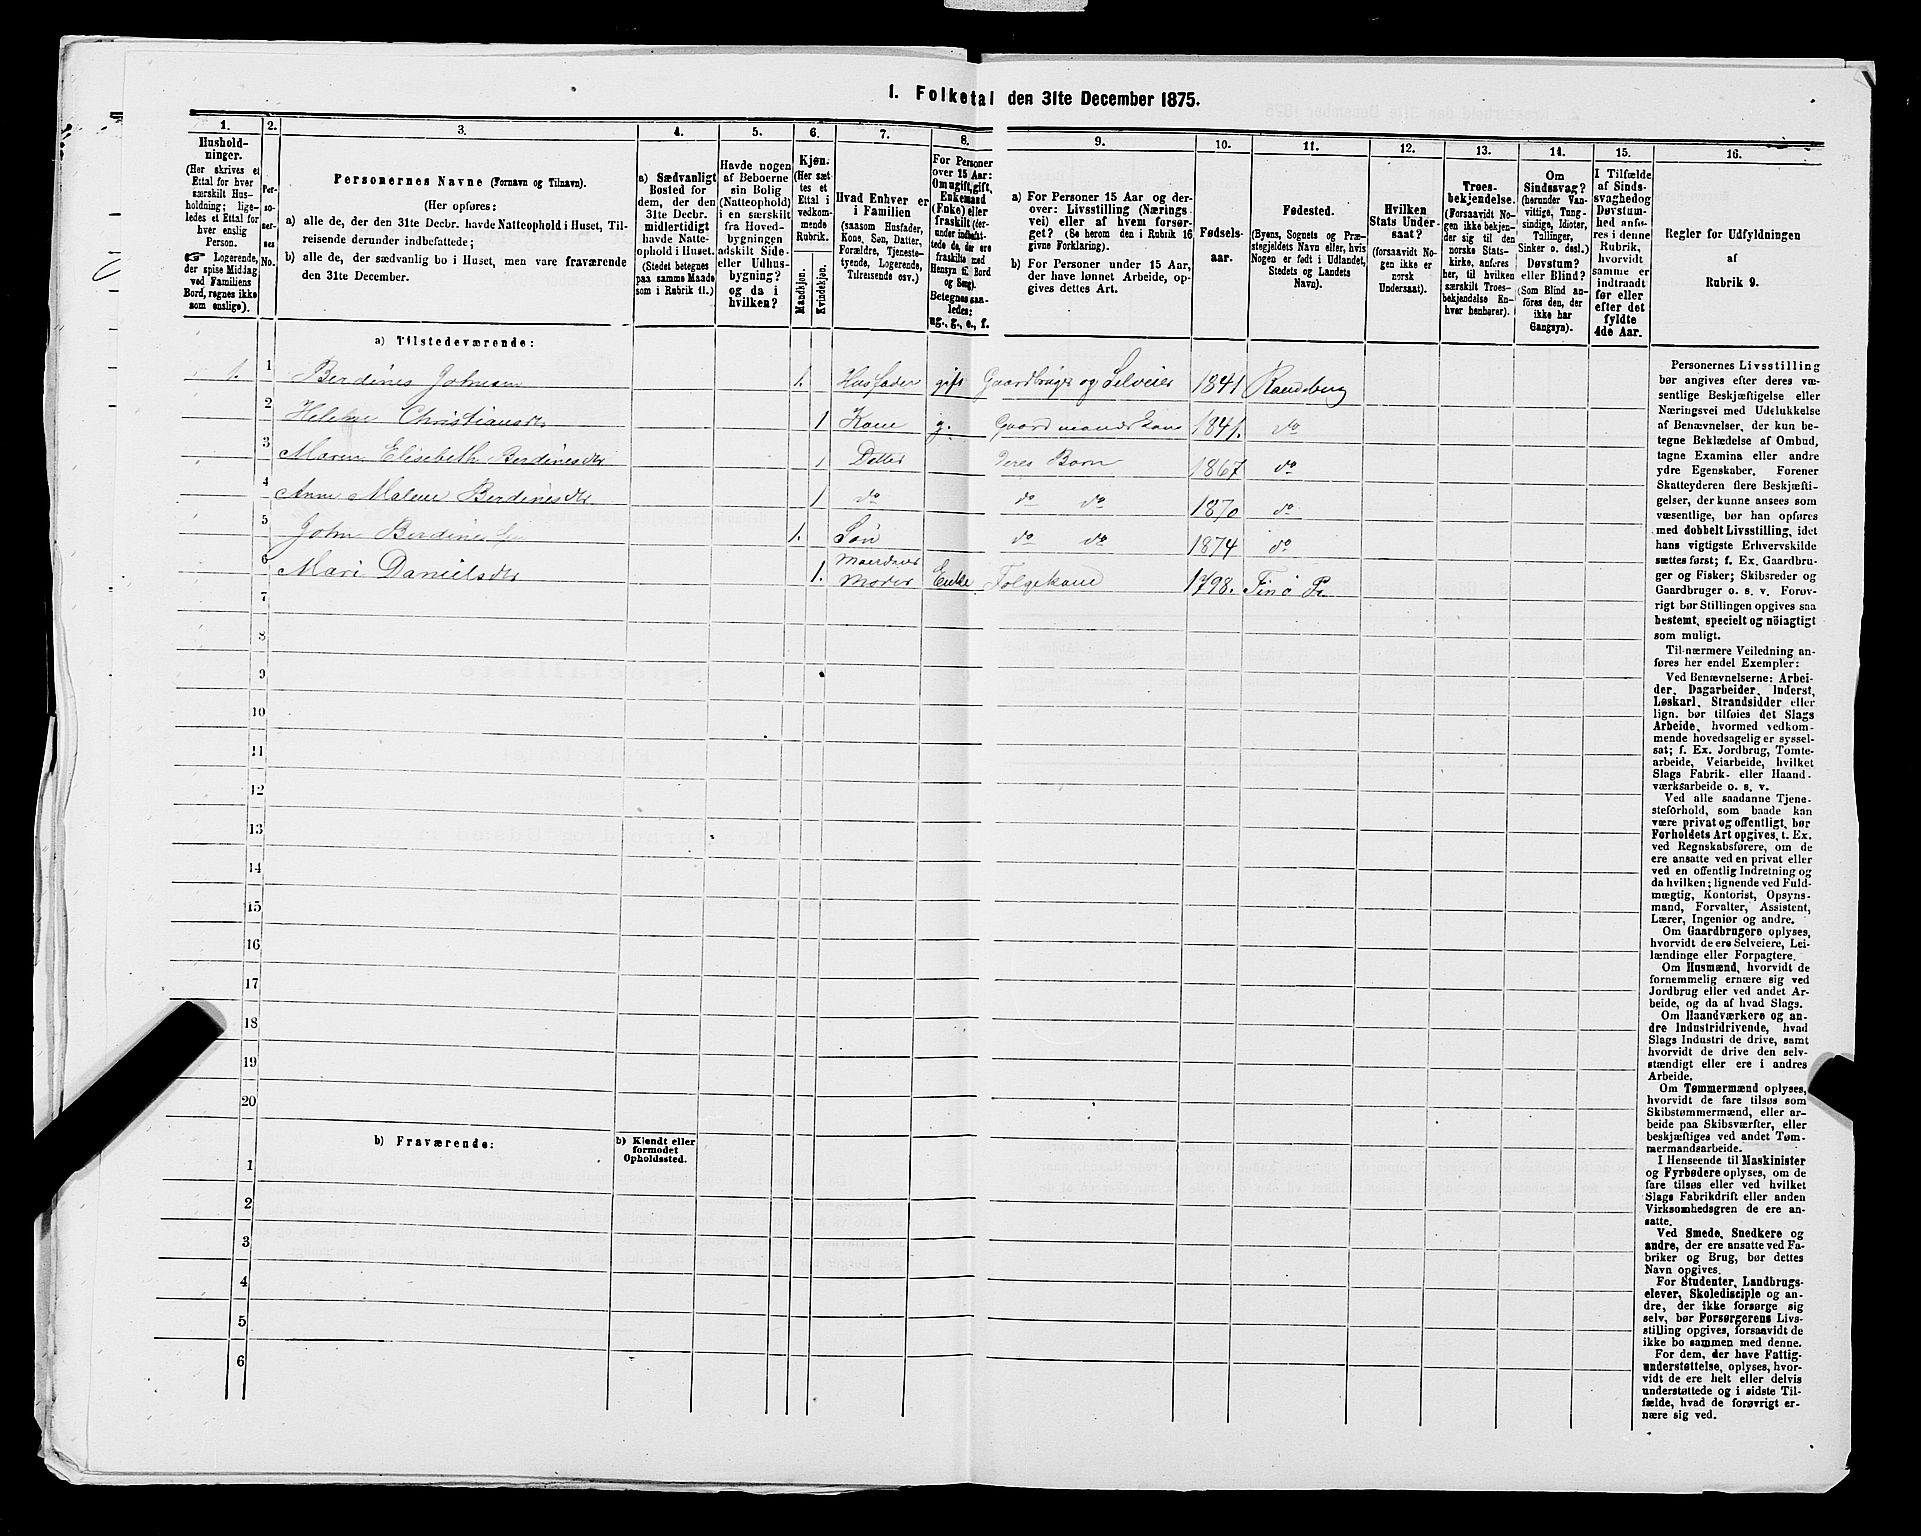 I. Folketal den 31te December 1875.
1. 2. 3. 4. 5. 6. 7. 8. 9. 10. 11. 12. 13. 14. 15. 16.
Hushold-
ninger.
(Her skrives et
Ettal for hver
særskilt Hus-
holdning; lige-
ledes et Ettal for
hver enslig
Person.
☞ Logerende,
der spise Middag
ved Familiens
Bord, regnes ikke
som enslige).
Per-
so-
ner-
nes
No.
Personernes Navne (Fornavn og Tilnavn).
(Her opføres:
a) alle de, der den 31te Decbr. havde Natteophold i Huset, Til-
reisende derunder indbefattede;
b) alle de, der sædvanlig bo i Huset, men vare fraværende
den 31te December.
a) Sædvanligt
Bosted for
dem, der den
31te Decbr.
midlertidigt
havde Natte-
ophold i Huset.
(Stedet betegnes
paa samme Maade
som i Rubrik 11.)
Havde nogen
af Beboerne
sin Bolig
(Natteophold)
i en særskilt
fra Hoved-
bygningen
adskilt Side-
eller Udhus-
bygning?
og da i
hvilken?
Kjøn.
(Her sæt-
tes et
Ettal i
vedkom-
mende
Rubrik.
Mandkjøn.
Kvindekjøn.
Hvad Enhver er
i Familien
(saasom Husfader,
Kone, Søn, Datter,
Forældre, Tjeneste-
tyende, Logerende,
Tilreisende osv.)
For Personer
over 15 Aar:
Om ugift, gift,
Enkemand
(Enke) eller
fraskilt (der-
under indbefat-
tede de, der ere
fraskilte med
Hensyn til Bord
og Seng).
Betegnes saa-
ledes:
ug., g., e., f.
a) For Personer 15 Aar og der-
over: Livsstilling (Nærings-
vei) eller af hvem forsør-
get? (Se herom den i Rubrik 16
givne Forklaring).
b) For Personer under 15 Aar,
der have lønnet Arbeide, op-
gives dettes Art.
Fødsels-
aar.
Fødested.
(Byens, Sognets og Præ-
stegjeldets Navn eller, hvis
Nogen er født i Udlandet,
Stedets og Landets
Navn).
Hvilken
Stats Under-
saat?
(forsaavidt No-
gen ikke er
norsk
Undersaat).
Troes-
bekjendelse.
(Forsaavidt No-
gen ikke bekjen-
der sig til den
norske Stats-
kirke, anføres
her, til hvilken
særskilt Troes-
bekjendelse En-
hver henhører).
Om
Sindssvag?
(herunder Van-
vittige, Tung-
sindige, Idioter,
Tullinger,
Sinker o. desl.)
Døvstum?
eller Blind?
(Som Blind an-
føres den, der
ikke har
Gangsyn).
I Tilfælde
af Sinds-
svaghed og
Døvstum-
hed anfø-
res i denne
Rubrik,
hvorvidt
samme er
indtraadt
før eller
efter det
fyldte
4de Aar.
Regler for Udfyldningen
af
Rubrik 9.
a) Tilstedeværende:
1. 1 Berdines Johnsen 1. Husfader gift Gaardbruger og Selveier 1841 Randeberg
2 Helene Christiansdr 1 Kone g. Gaardmandskone 1841. do
3 Maren Elisebeth Berdinesdtr 1 Datter deres Barn 1867 do
4 Anne Malene Berdinesdtr 1 do do do 1870 do
5 John Berdines 1. Søn do do 1874 do
6 Mari Danielsdtr 1. Mandens Moder Enke Folgekone 1798. Finø Pr
7
8
9
10
11
12
13
14
15
16
17
18
19
20
b) Fraværende:
b) Kjendt eller
formodet
Opholdssted.
1
2
3
4
5
6
Personernes Livsstilling
bør angives efter deres væ-
sentlige Beskjæftigelse eller
Næringsvei med Udelukkelse
af Benævnelser, der kun be-
tegne Beklædelse af Ombud,
tagne Examina eller andre
ydre Egenskaber. Forener
Skatteyderen flere Beskjæfti-
gelser, der kunne ansees som
væsentlige, bør han opføres
med dobbelt Livsstilling, idet
hans vigtigste Erhvervskilde
sættes først; f. Ex. Gaardbru-
ger og Fisker; Skibsreder og
Gaardbruger o. s. v. Forøv-
rigt bør Stillingen opgives saa
bestemt, specielt og nöiagtigt
som muligt.
Til nærmere Veiledning an-
føres her endel Exempler:
Ved Benævnelserne: Arbei-
der, Dagarbeider, Inderst,
Løskarl, Strandsidder eller
lign. bør tilføies det Slags
Arbeide, hvormed vedkom-
mende hovedsagelig er syssel-
sat; f. Ex. Jordbrug, Tomte-
arbeide, Veiarbeide, hvilket
Slags Fabrik- eller Haand-
værksarbeide o. s. v.
Ved alle saadanne Tjene-
steforhold, som baade kan
være privat og offentligt, bør
Forholdets Art opgives, t. Ex.
ved Regnskabsførere, om de
ere ansatte ved en privat eller
ved en offentlig Indretning og
da hvilken; lignende ved Fuld-
mægtig, Kontorist, Opsyns-
mand, Forvalter, Assistent,
Lærer, Ingeniør og andre.
Om Gaardbrugere oplyses,
hvorvidt de ere Selveiere, Lei-
lændinge eller Forpagtere.
Om Husmænd, hvorvidt de
fornemmelig ernære sig ved
Jordbrug eller ved andet Ar-
beide, og da af hvad Slags.
Om Haandværkere og an-
dre Industridrivende, hvad
Slags Industri de drive, samt
hvorvidt de drive den selv-
stændigt eller ere i andres
Arbeide.
Om Tømmermænd oplyses,
hvorvidt de fare tilsøs som
Skibstømmermænd, eller ar-
beide paa Skibsværfter, eller
beskjæftiges ved andet Tøm-
mermandsarbeide.
I Henseende til Maskinister
og Fyrbødere oplyses, om de
fare tilsøs eller ved hvilket
Slags Fabrikdrift eller anden
Virksomhedsgren de ere an-
satte.
Ved Smede, Snedkere og
andre, der ere ansatte ved Fa-
briker og Brug, bør dettes
Navn opgives.
For Studenter, Landbrugs-
elever, Skoledisciple og an-
dre, der ikke forsørge sig
selv, bør Forsørgerens Livs-
stilling opgives, forsaavidt de
ikke bo sammen med denne.
For dem, der have Fattig-
understøttelse, oplyses, hvor-
vidt de ere helt eller delvis
understøttede og i sidste Til-
fælde, hvad de forøvrigt er-
nære sig ved.